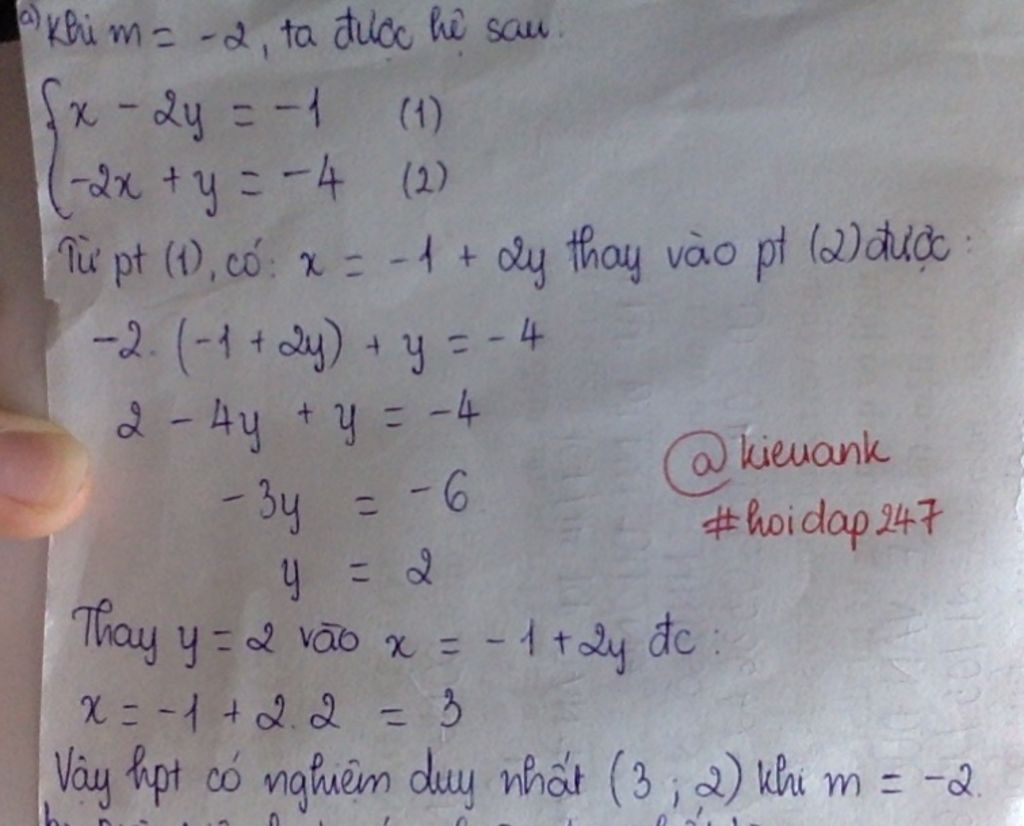 a) Khi m = -2, ta được hệ sau:
x - 2y = -1 (1)
-2x + y = -4 (2)
Từ pt (1), có: x = -1 + 2y thay vào pt (2) được:
-2. (-1 + 2y) + y = -4
2 - 4y + y = -4
-3y = -6
y = 2
@kieuank
#hoidap247
Thay y = 2 vào x = -1 + 2y đc:
x = -1 + 2.2 = 3
Vậy hpt có nghiệm duy nhất (3 ; 2) khi m = -2.